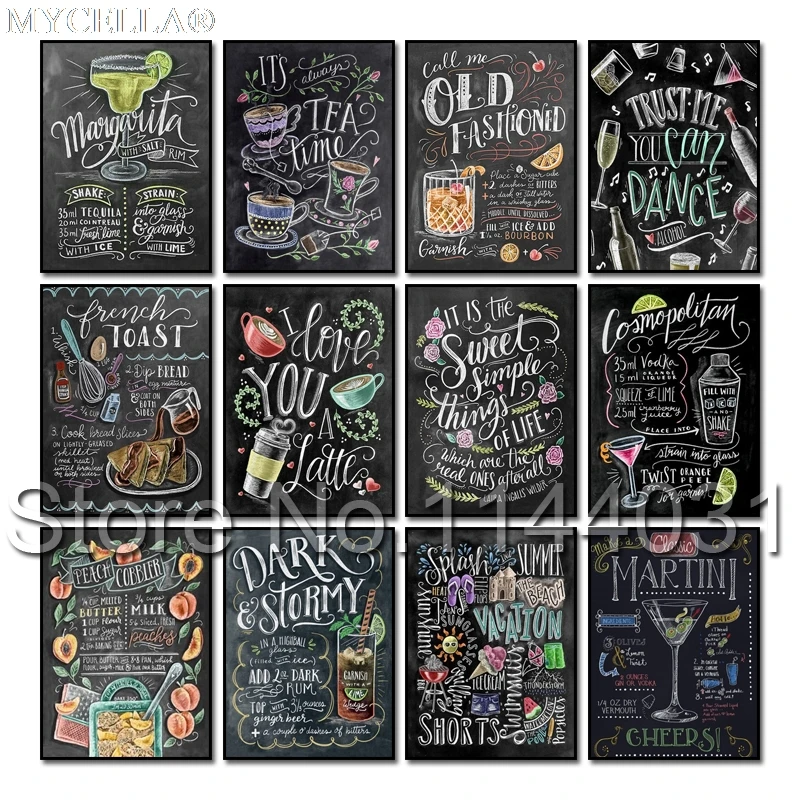 MYCELLA®
Margarita
WITH SALT RIM
SHAKE:
35ml TEQUILA
20ml COINTREAU
35ml fresh lime
WITH ICE
STRAIN:
into glass
& garnish
WITH LIME
IT'S always
TEA
time
call me
OLD
FASHIONED
Place a Sugar cube
+2 dashes of BITTERS
+ a dash of Still water
in a whiskey glass
MUDDLE UNTIL DISSOLVED
FILL with ICE & ADD
1 1/2 oz. BOURBON
Garnish with
TRUST ME
YOU can
DANCE
ALCOHOL
french
TOAST
1. Whisk
1/4 cup
2. Dip BREAD
in egg mixture
& COAT ON
BOTH
SIDES
3. Cook bread slices
ON LIGHTLY-GREASED
skillet
(med heat)
until browned
on both sides.
I love
YOU
A
Latte
IT IS THE
Sweet
simple
things
OF LIFE
Which are the
real ONES after all
LAURA INGALLS WILDER
Cosmopolitan
35ml Vodka
15ml ORANGE LIQUEUR
SQUEEZE OF LIME
25ml cranberry juice
FILL WITH
ICE
AND
SHAKE
PLACE INTO
strain into glass
TWIST ORANGE PEEL
for garnish
Store No.1144031
PEACH COBBLER
1/4 CUP MELTED
BUTTER
1 CUP flour
1 CUP Sugar
2 tsp BAKING
3/4 cups
MILK
5 1/2 Sliced, Fresh
peaches
DARK
& STORMY
IN A HIGHBALL
glass
(filled with ice)
ADD 2oz DARK
RUM
TOP with 3 1/2 ounces
ginger beer
+ a couple o' dashes of bitters
GARNISH
WITH A
LIME
Wedge
Splash
SUMMER
HEAT
FLIP FLOPS
THE BEACH
sunshine
VACATION
SUNGLASSES
ICE CREAM
Swimming
SHORTS
WATERMELON
POPSICLES
Make a Classic
MARTINI
INGREDIENTS
3 OLIVES
Lemon
Twist
2 OUNCES
GIN OR VODKA
1/4 OZ. DRY
VERMOUTH
CHEERS!